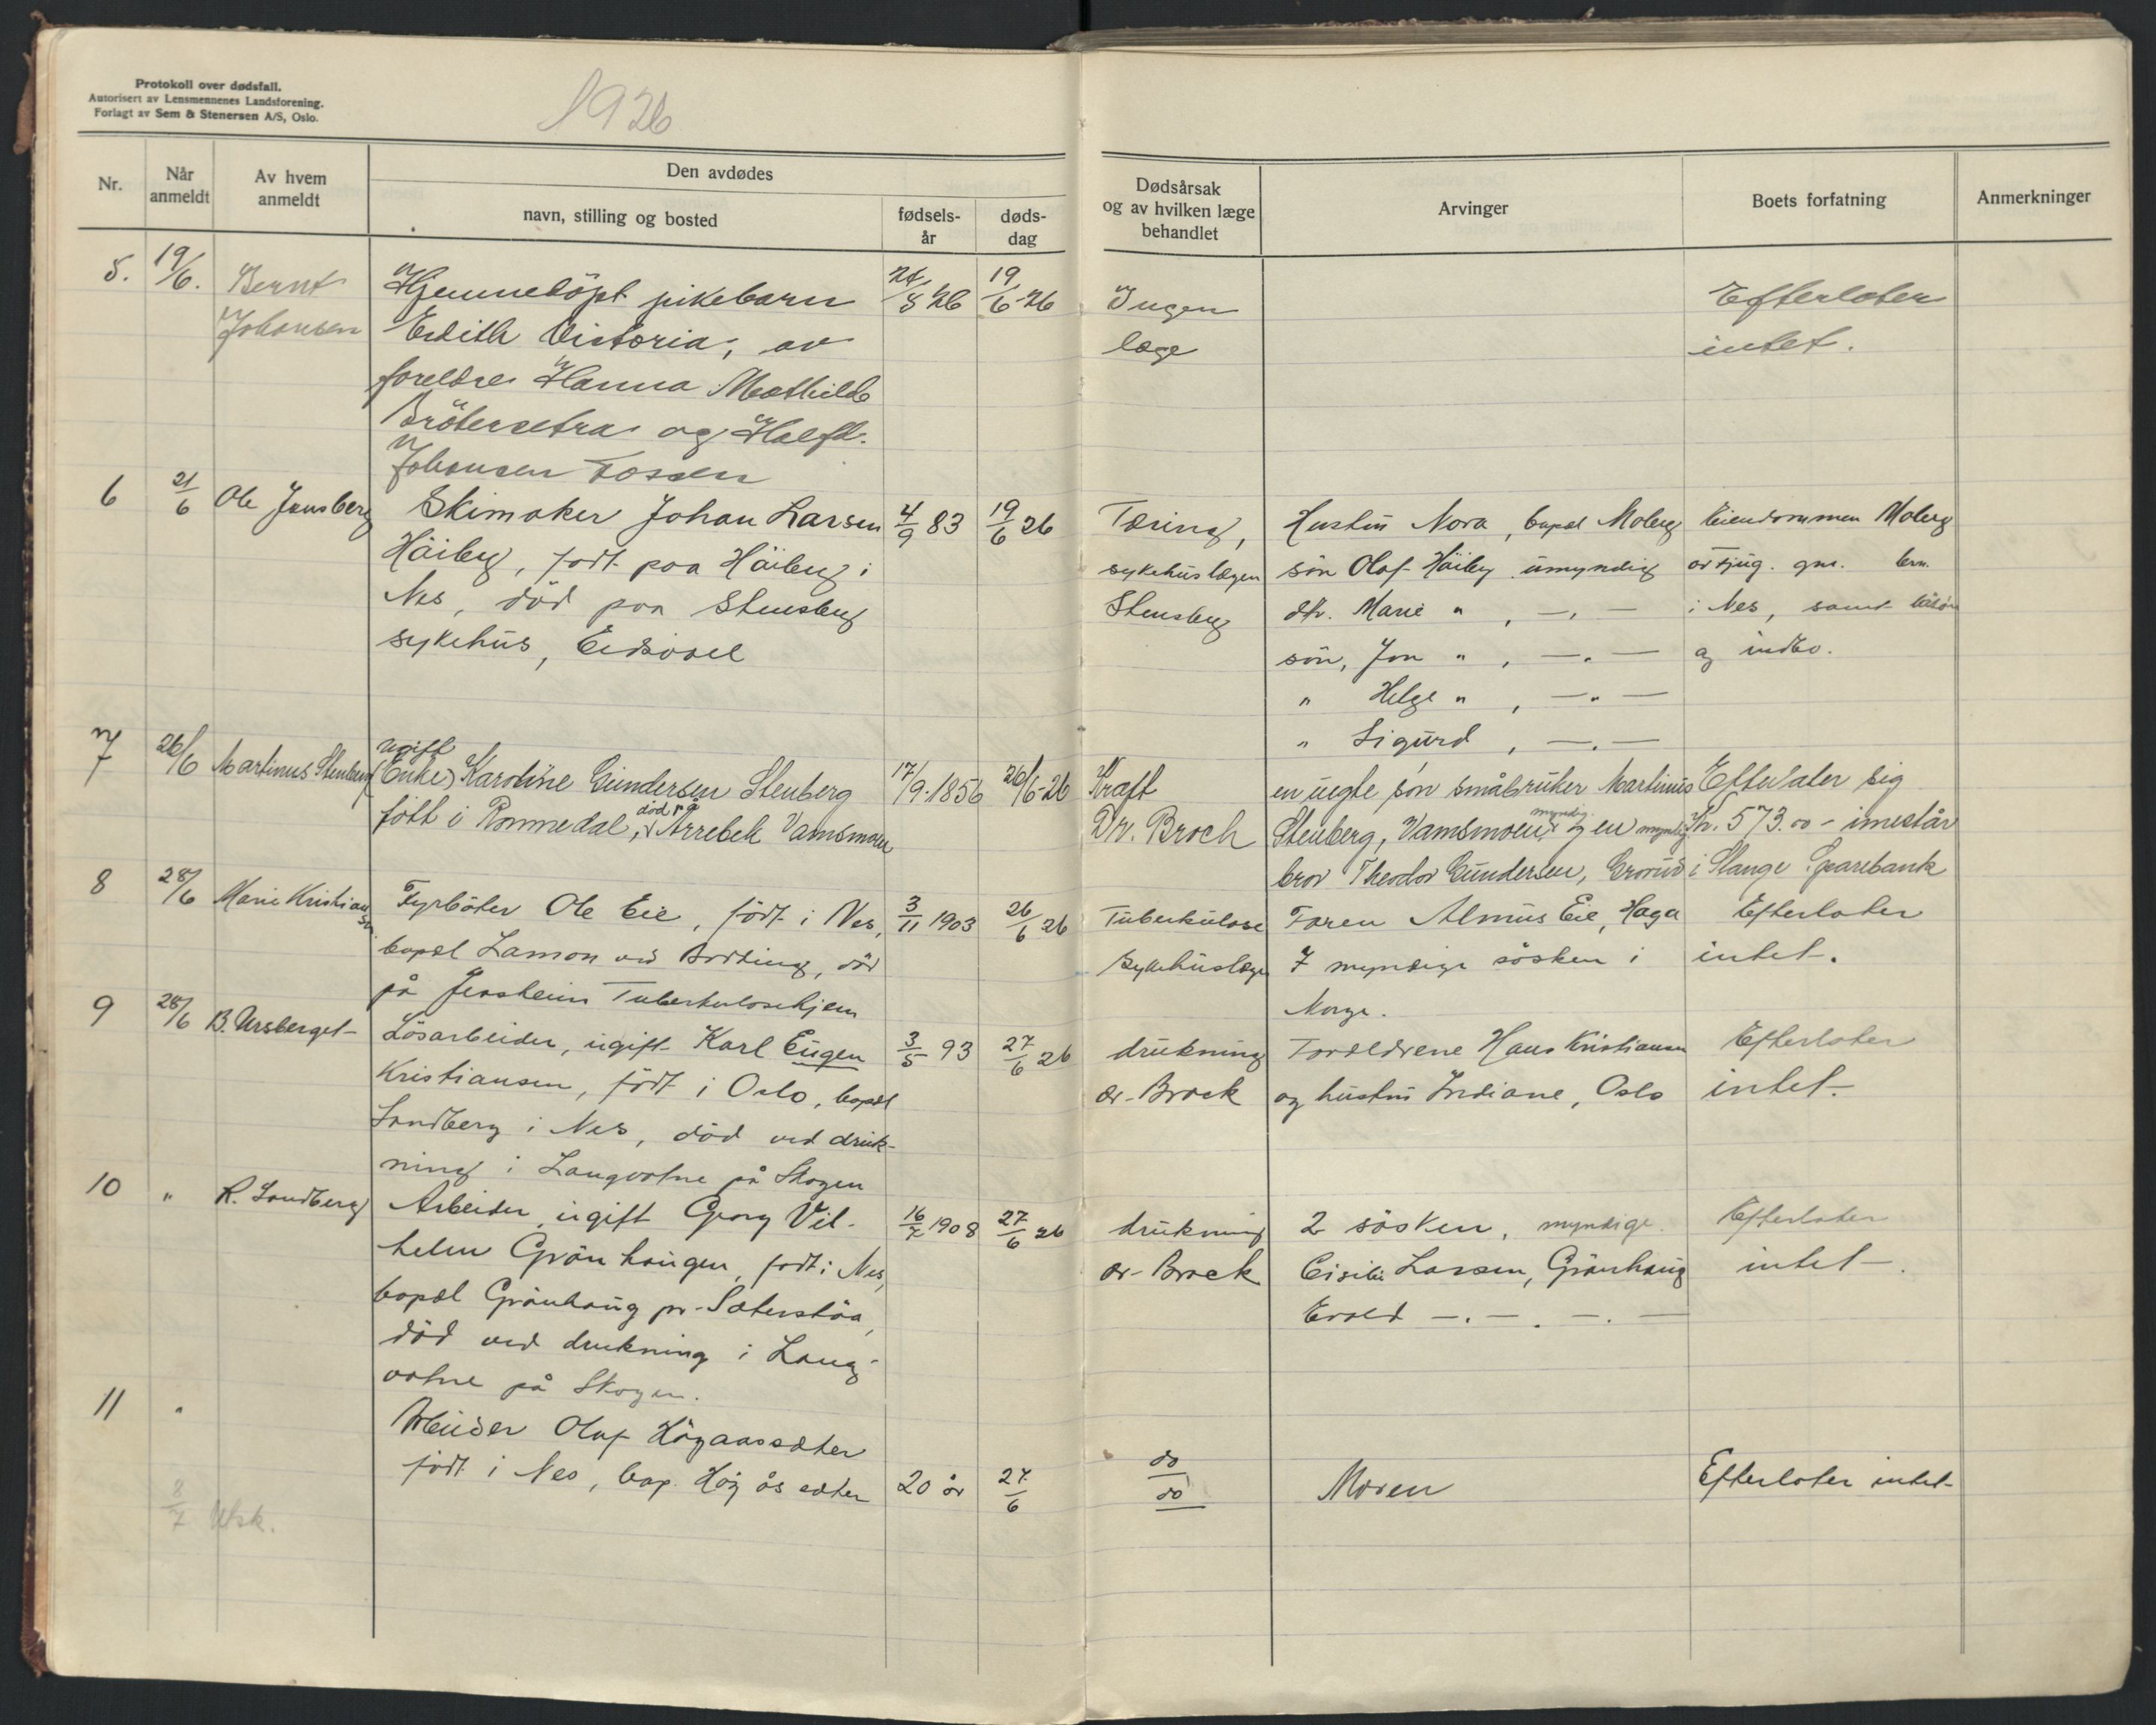 Protokoll over dødsfall.
Autorisert av Lensmennenes Landsforening.
Forlagt av Sem & Stenersen A/S, Oslo.
1926
Nr.
Når anmeldt
Av hvem anmeldt
Den avdødes
navn, stilling og bosted
fødsels-år
døds-dag
Dødsårsak og av hvilken læge behandlet
Arvinger
Boets forfatning
Anmerkninger
5. 19/6. Bernt Hjemmedöpt pikebarn 19/6-26 Ingen Efterlater
Johansen Edith Victoria, av læge intet.
foreldre Hanna Mathilde
Brötersetra og Halfd.
Johansen Fossen
6 21/6 Ole Jensberg Skimaker Johan Larsen 4/9 83 19/6 26 Tæring, Hustru Nora, bopæl Moberg Eiendommen Moberg
Häiberg, født paa Häiberg i sykehuslægen sön Olaf Häiberg umyndig gnr. brn.
Nes, död paa Stensberg Stensberg dtr. Marie " , - " - i Nes, samt
sykehus, Eidsvoll sön, Jon " , - " - og indbo.
" Helge " , - " -
" Sigurd , - " -
7 26/6 Martinus Stenberg ugift
(Enke) Karoline Gundersen Stenberg 17/9-1856 26/6-26 Kræft en uegte søn småbruker Martinus Efterlater sig
født i Rommedal, død på Arrebek Vamsmoen Dr. Broch Stenberg, Vamsmoen, myndig og en myndig Kr. 573.00 - innestår
bror Theodor Gundersen, Grorud i Stange Sparebank
8 28/6 Marie Kristiansen Fyrböter Ole Eie, født i Nes, 3/11 1903 26/6 26 Tuberkulose Faren Almus Eie, Haga Efterlater
bopæl Lamon ved død Sykehuslægen 7 myndige søsken i intet.
på Jessheim Tuberkulosehjem Norge.
9 28/6 B. Ursberget Lösarbeider, ugift Karl Eugen 3/5 93 27/6 26 drukning Foreldrene Hans Kristiansen Efterlater
Kristiansen, født i Oslo, bopæl dr. Brock og hustru Indiane, Oslo intet.
Sandberg i Nes, död ved druk-
ning i Langvatne på Skogen
10 " R. Sandberg Arbeider, ugift Georg Vil- 16/7 1908 27/6 26 drukning 2 søsken, myndige. Efterlater
helm Grönhaugen, født i Nes, dr. Brock Larsen, Grönhaug intet.
bopæl Grönhaug pr. Sæterstöa, - . - . - . -
död ved drukning i Lang-
vatne på Skogen.
11 " Arbeider Olaf Högaassæter
født i Nes, bop. Högåssæter 20 år 27/6 do Moren Efterlater intet.
do
8/7 Utsk.